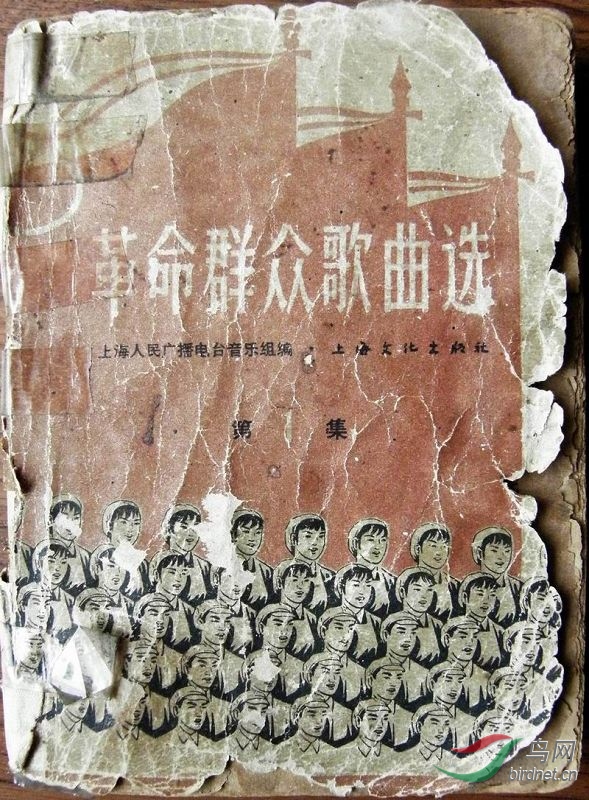 革命群众歌曲选
上海人民广播电台音乐组编 · 上海文化出版社
第 集
鸟网
birdnet.cn